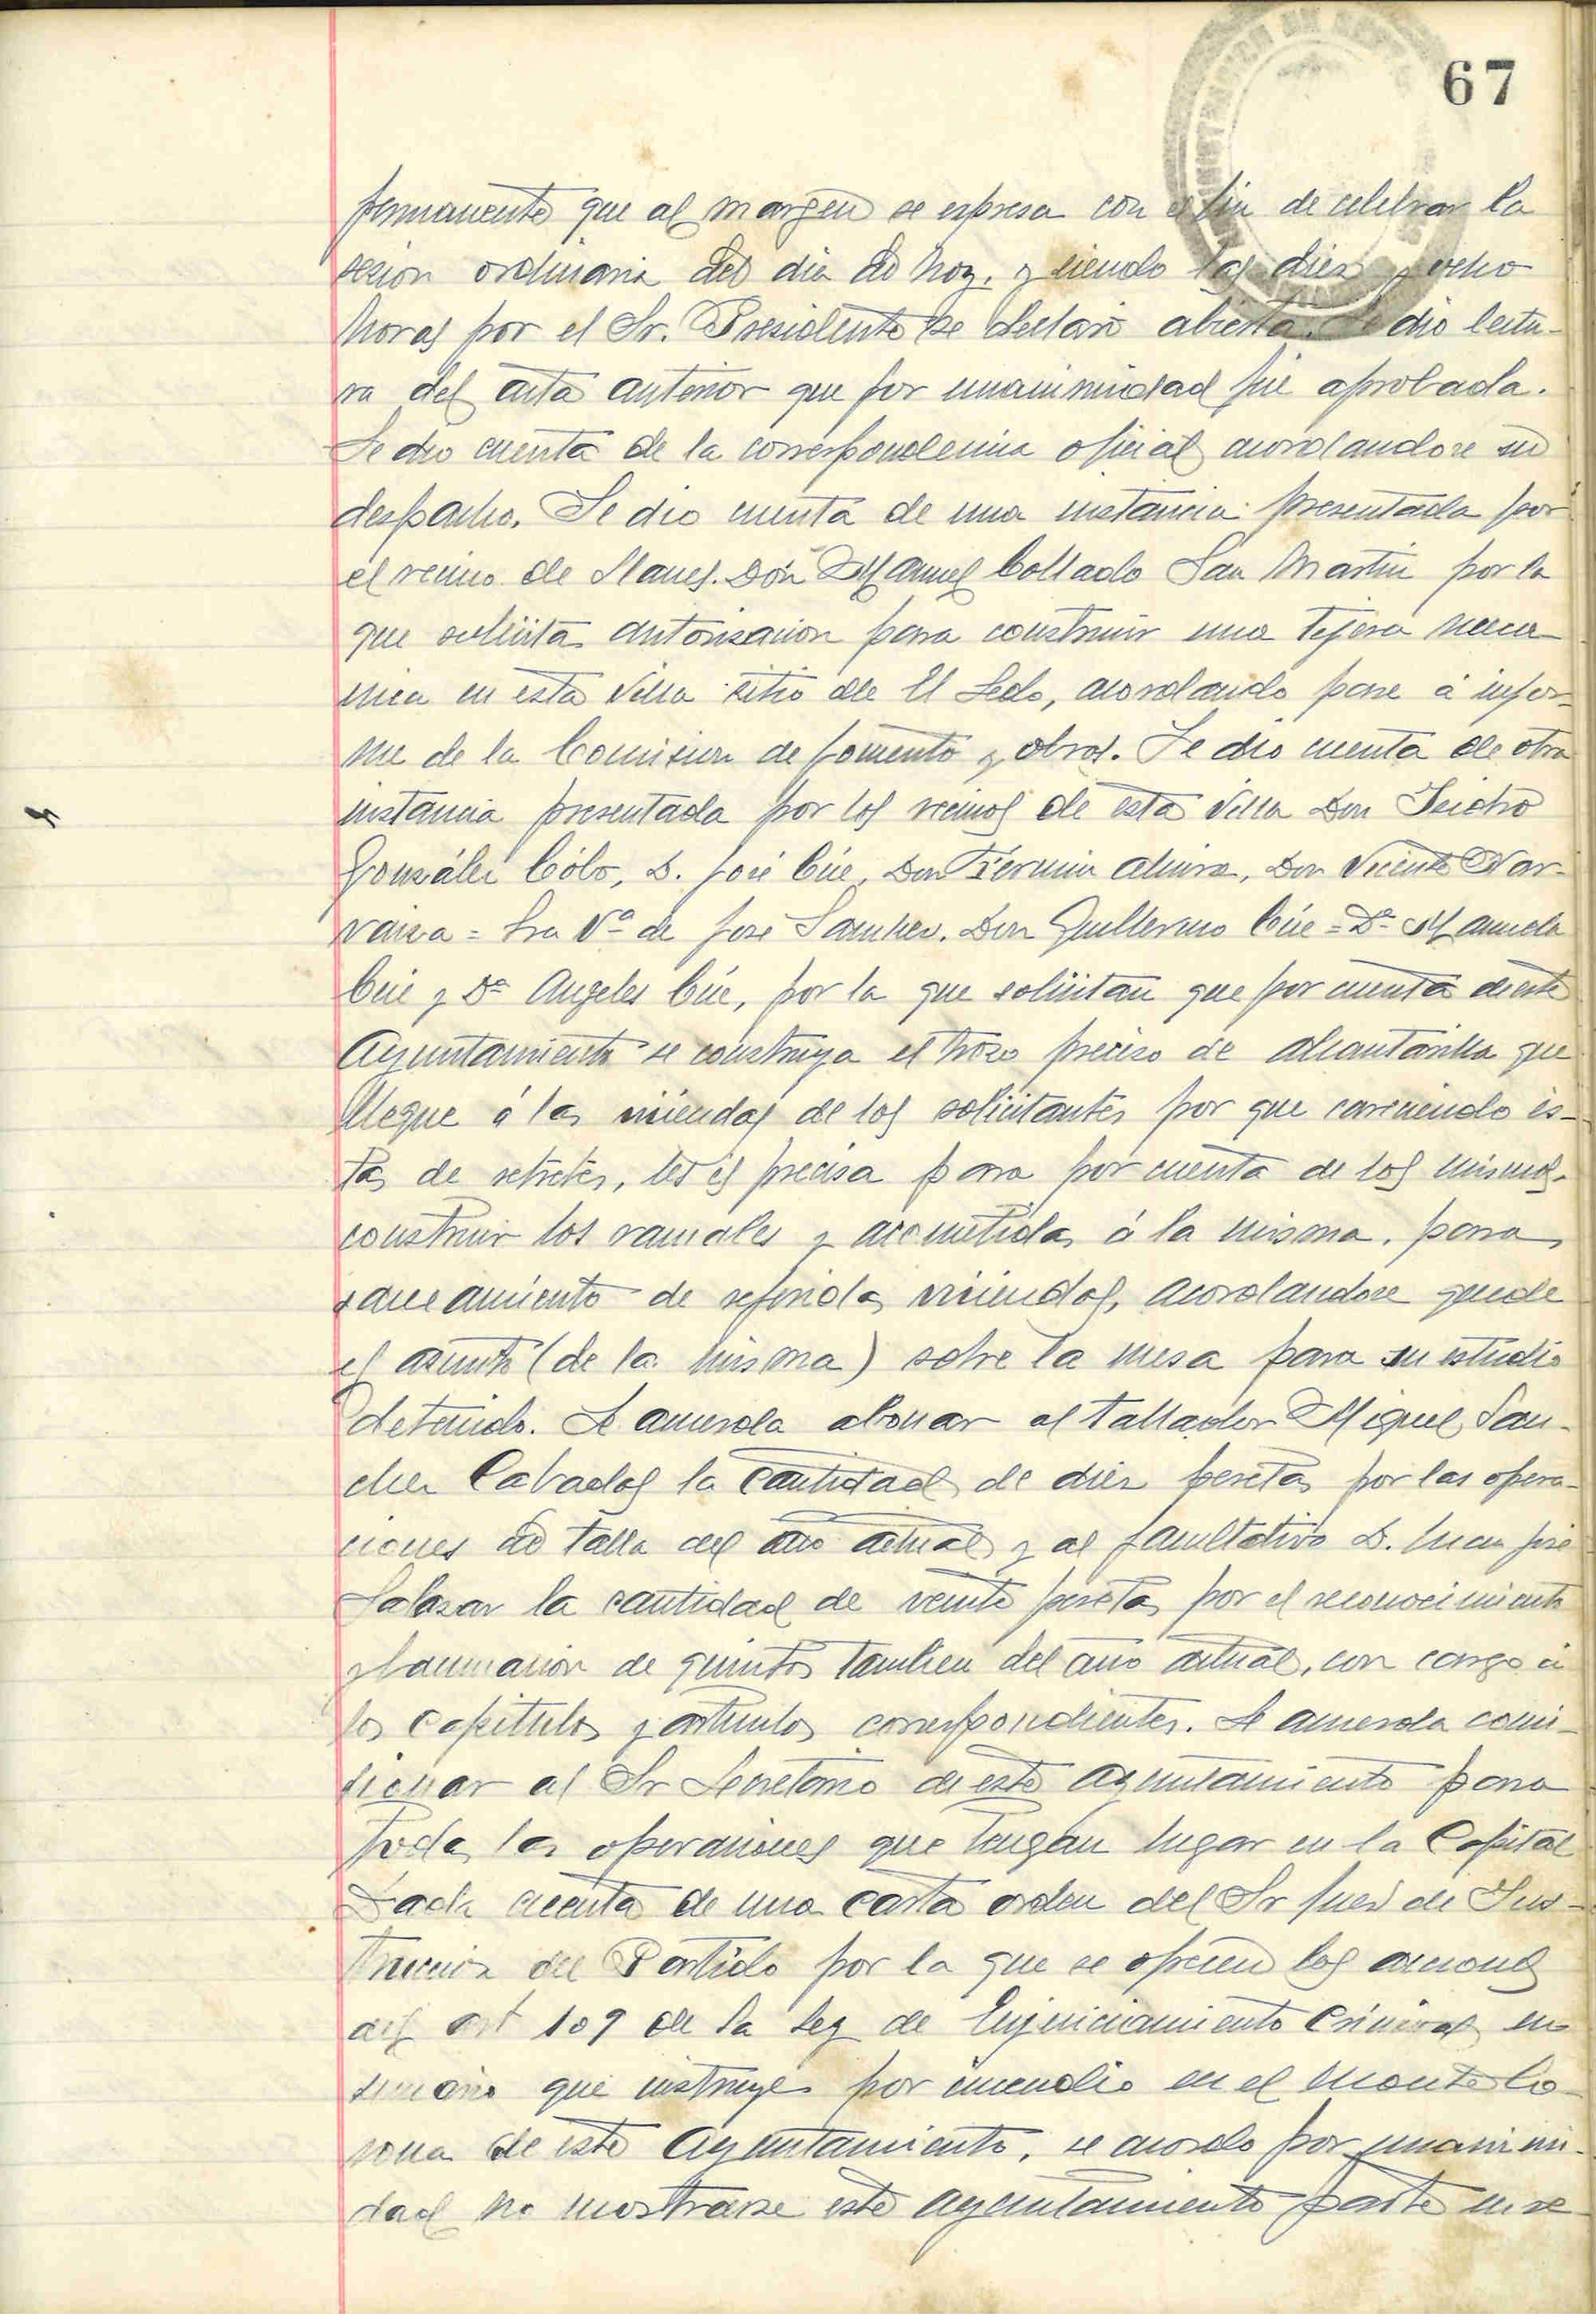 67
permanente que al margen se espresa con el fin de celebrar la
sesion ordinaria del dia de hoy, y siendo las diez y ocho
horas por el Sr. Presidente se declaró abierta. Se dio lectu-
ra del acta anterior que por unanimidad fué aprobada.
Se dio cuenta de la correspondencia oficial acordandose su
despacho. Se dio cuenta de una instancia presentada por
el vecino de Llanes. Don Manuel Collado San Martin por la
que solicita autorizacion para construir una tejera meca-
nica en esta Villa sitio de El Ledo, acordando pase á infor-
me de la Comision de fomento y obras. Se dio cuenta de otra
instancia presentada por los vecinos de esta Villa Don Isidro
González Cólo, D. José Cúe, Don Fermin Don Vicente Nar-
vaiza = Sra Vª de José Sanchez. Don Guillermo Cúe = Dª Manuela
Cúe y Dª Angeles Cúe, por la que solicitan que por cuenta de este
Ayuntamiento se construya el trozo preciso de alcantarilla que
llegue á las viviendas de los solicitantes por que careciendo és-
tas de retretes, les es precisa para por cuenta de los mismos
construir los ramales y acometidas á la misma, para
saneamiento de referidas viviendas, acordandose quede
el asunto (de la misma) sobre la mesa para su estudio
detenido. Se acuerda abonar al tallador Miguel San-
chez Cabados la cantidad de diez pesetas por las opera-
ciones de talla del año actual y al facultativo D. Juan José
Salazar la cantidad de veinte pesetas por el reconocimiento
y vacunacion de quintos tambien del año actual, con cargo á
los capitulos y articulos correspondientes. Se acuerda comi-
sionar al Sr Secretario de este ayuntamiento para
todas las operaciones que tengan lugar en la Capital
Dada cuenta de una carta orden del Sr Juez de Ins-
truccion del Partido por la que se ofrecen las acciones
del art 109 de la ley de Enjuiciamiento Criminal en
sumario que instruye por incendio en el monte Co-
rona de este Ayuntamiento, se acordo por unanimi-
dad no mostrarse este ayuntamiento parte en se